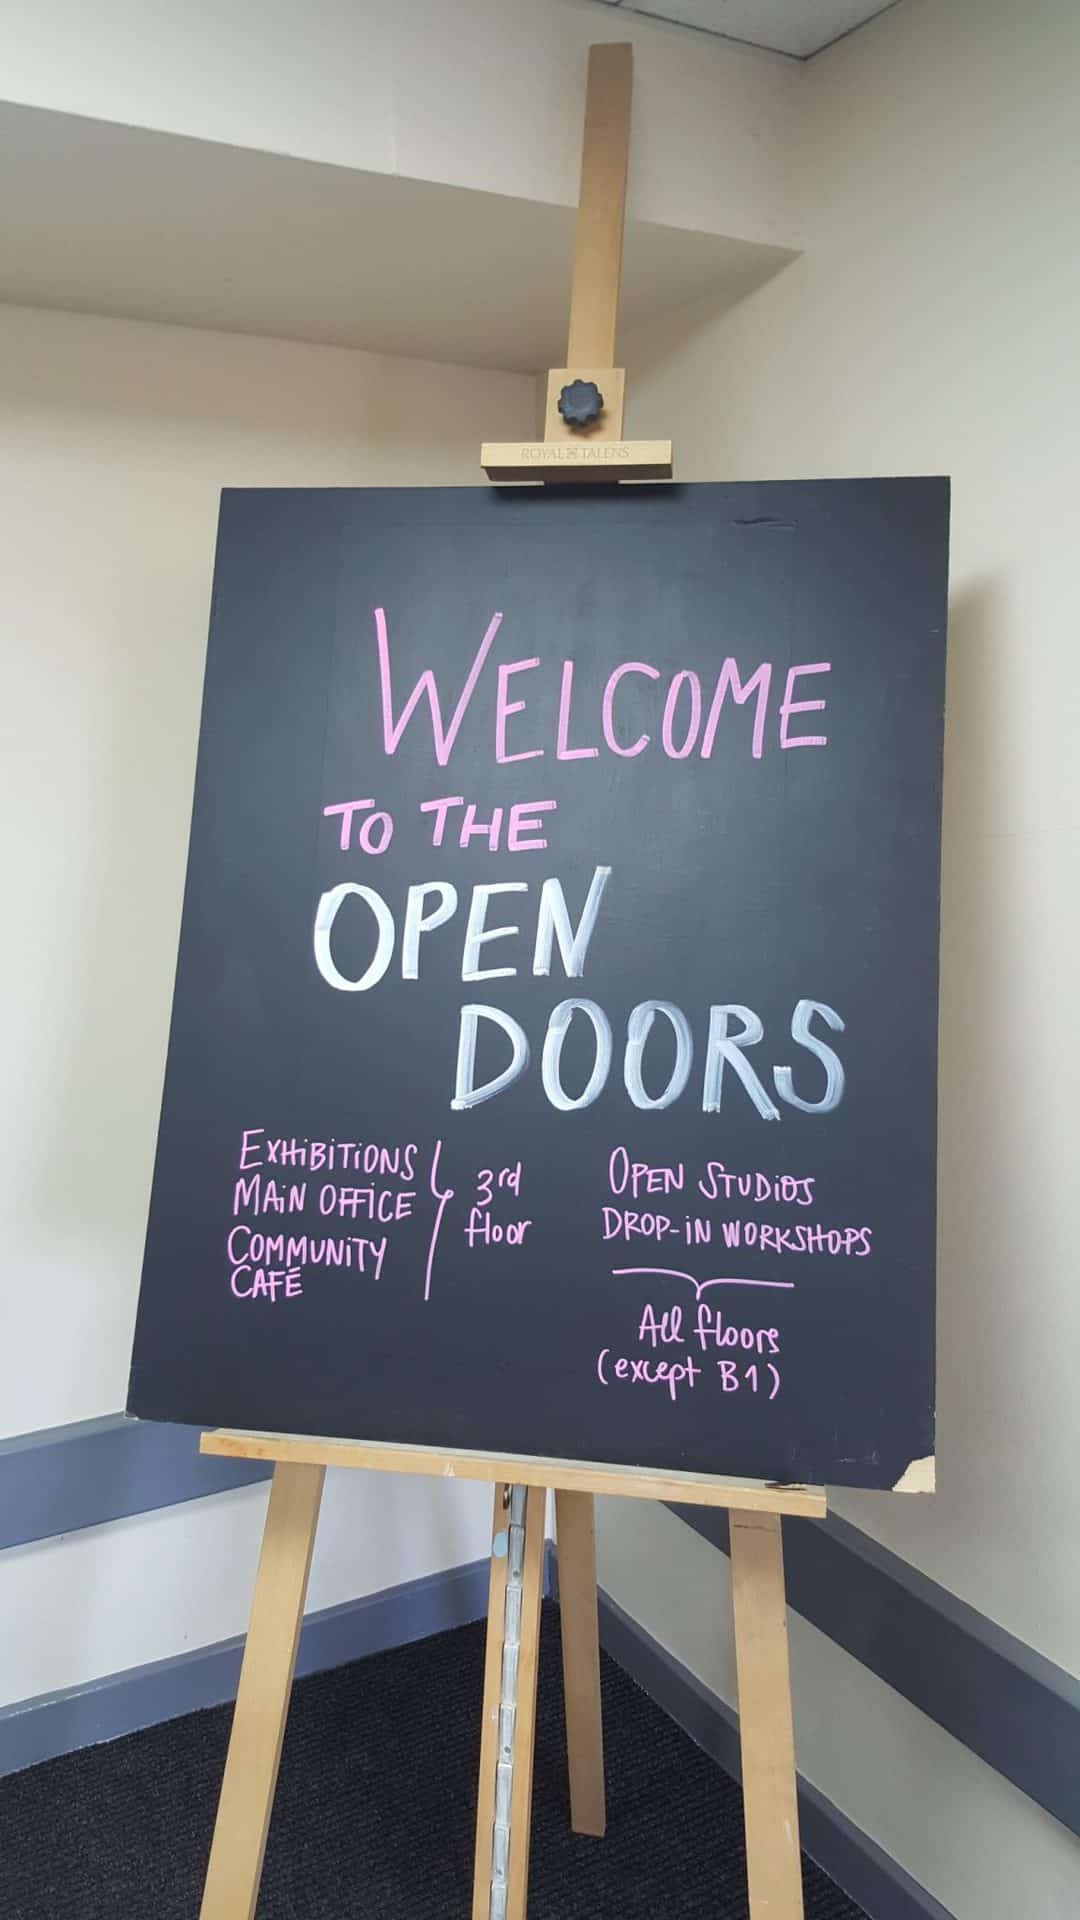 ROYAL TALENS
WELCOME
TO THE
OPEN
DOORS
EXHiBiTiONS
MAiN OFFiCE
COMMUNiTY
CAFÉ
3rd
floor
OPEN STUDiOS
DROP-iN WORKSHOPS
All floors
(except B1)